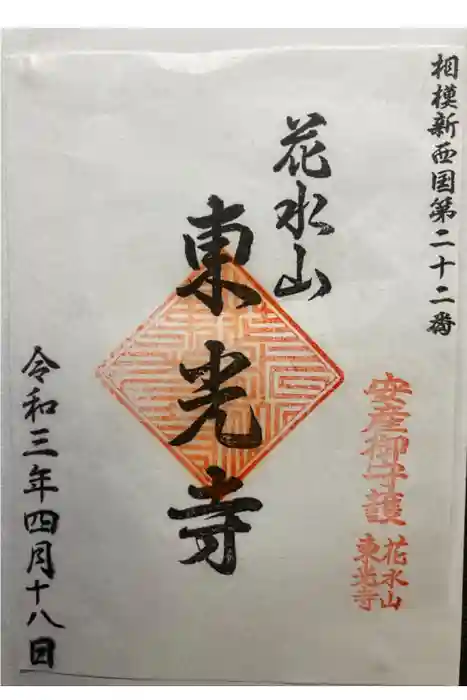 相模新西国第二十二番
花水山
東光寺
安産御守護
花水山
東光寺
令和三年四月十八日